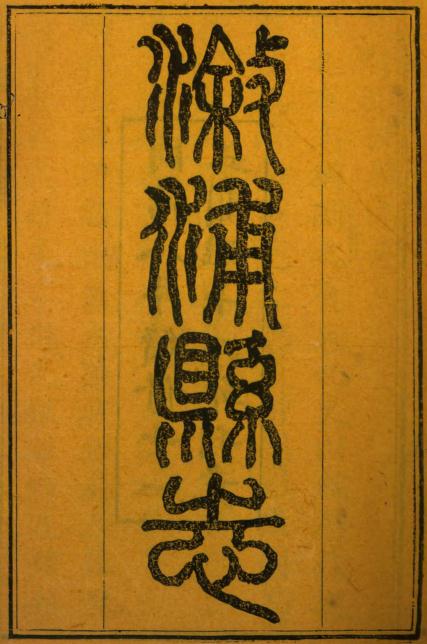 漵浦縣志